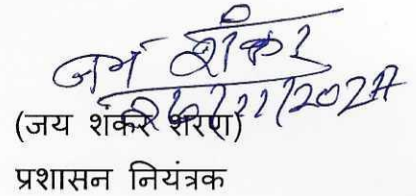 जय शंकर
26/11/2027
(जय शंकर शरण)
प्रशासन नियंत्रक